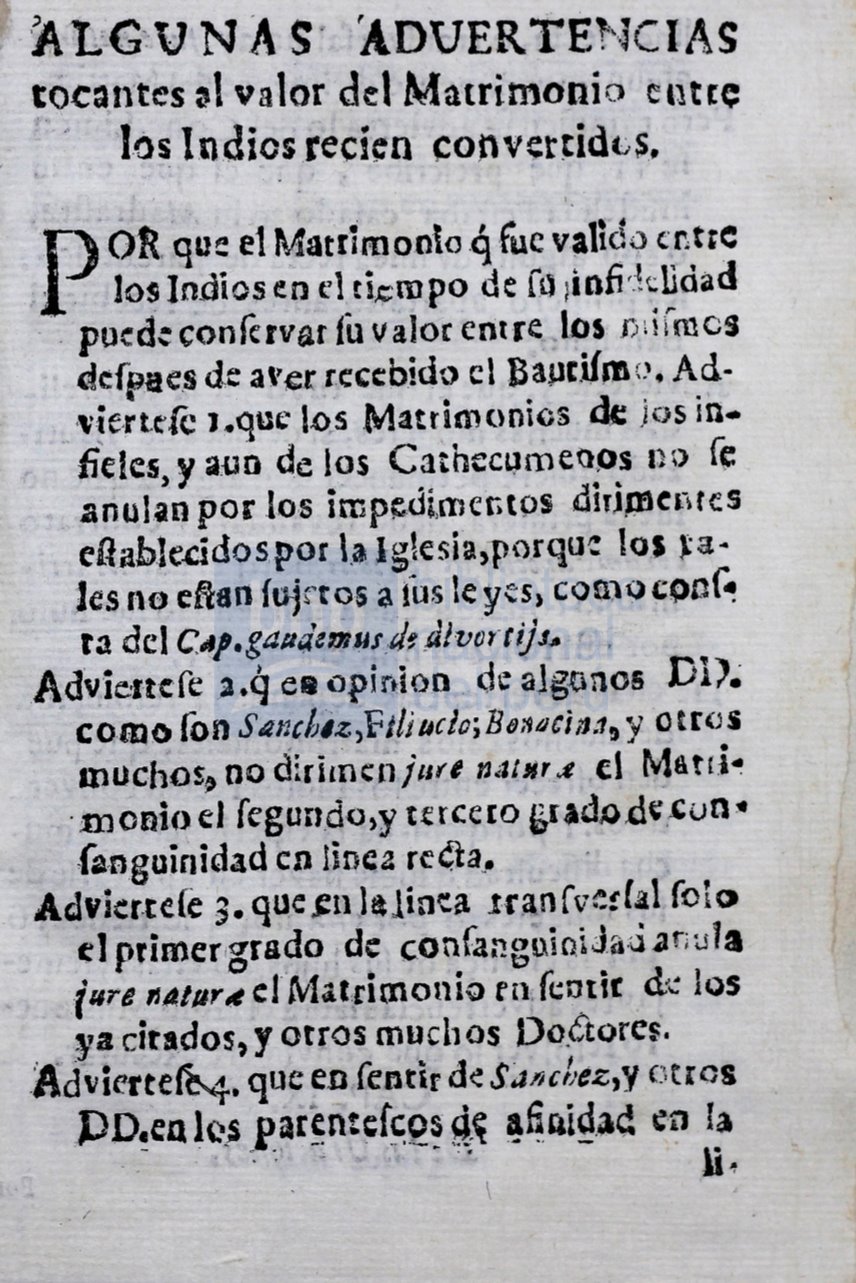 ALGUNAS ADUERTENCIAS
tocantes al valor del Matrimonio entre
los Indios recien convertidos.
POR que el Matrimonio q́ fue valido entre
los Indios en el tiempo de ſu infidelidad
puede conſervar ſu valor entre los miſmos
deſpaes de aver recebido el Bautiſmo. Ad-
vierteſe 1. que los Matrimonios de los in-
fieles, y aun de los Cathecumenos no ſe
anulan por los impedimentos dirimentes
eſtablecidos por la Igleſia, porque los ta-
les no eſtan ſujetos a ſus leyes, como conſ-
ta del Cap. gaudemus de divortijs.
Advierteſe 2. q́ en opinion de algunos DD.
como ſon Sanchez, Filiucio; Bonacina, y otros
muchos, no dirimen jure naturæ el Matri-
monio el ſegundo, y tercero grado de con-
ſanguinidad en linea recta.
Advierteſe 3. que en la linea tranſverſal ſolo
el primer grado de conſanguinidad anula
jure naturæ el Matrimonio en ſentir de los
ya citados, y otros muchos Doctores.
Advierteſe 4. que en ſentir de Sanchez, y otros
DD. en los parenteſcos de afinidad en la
li-